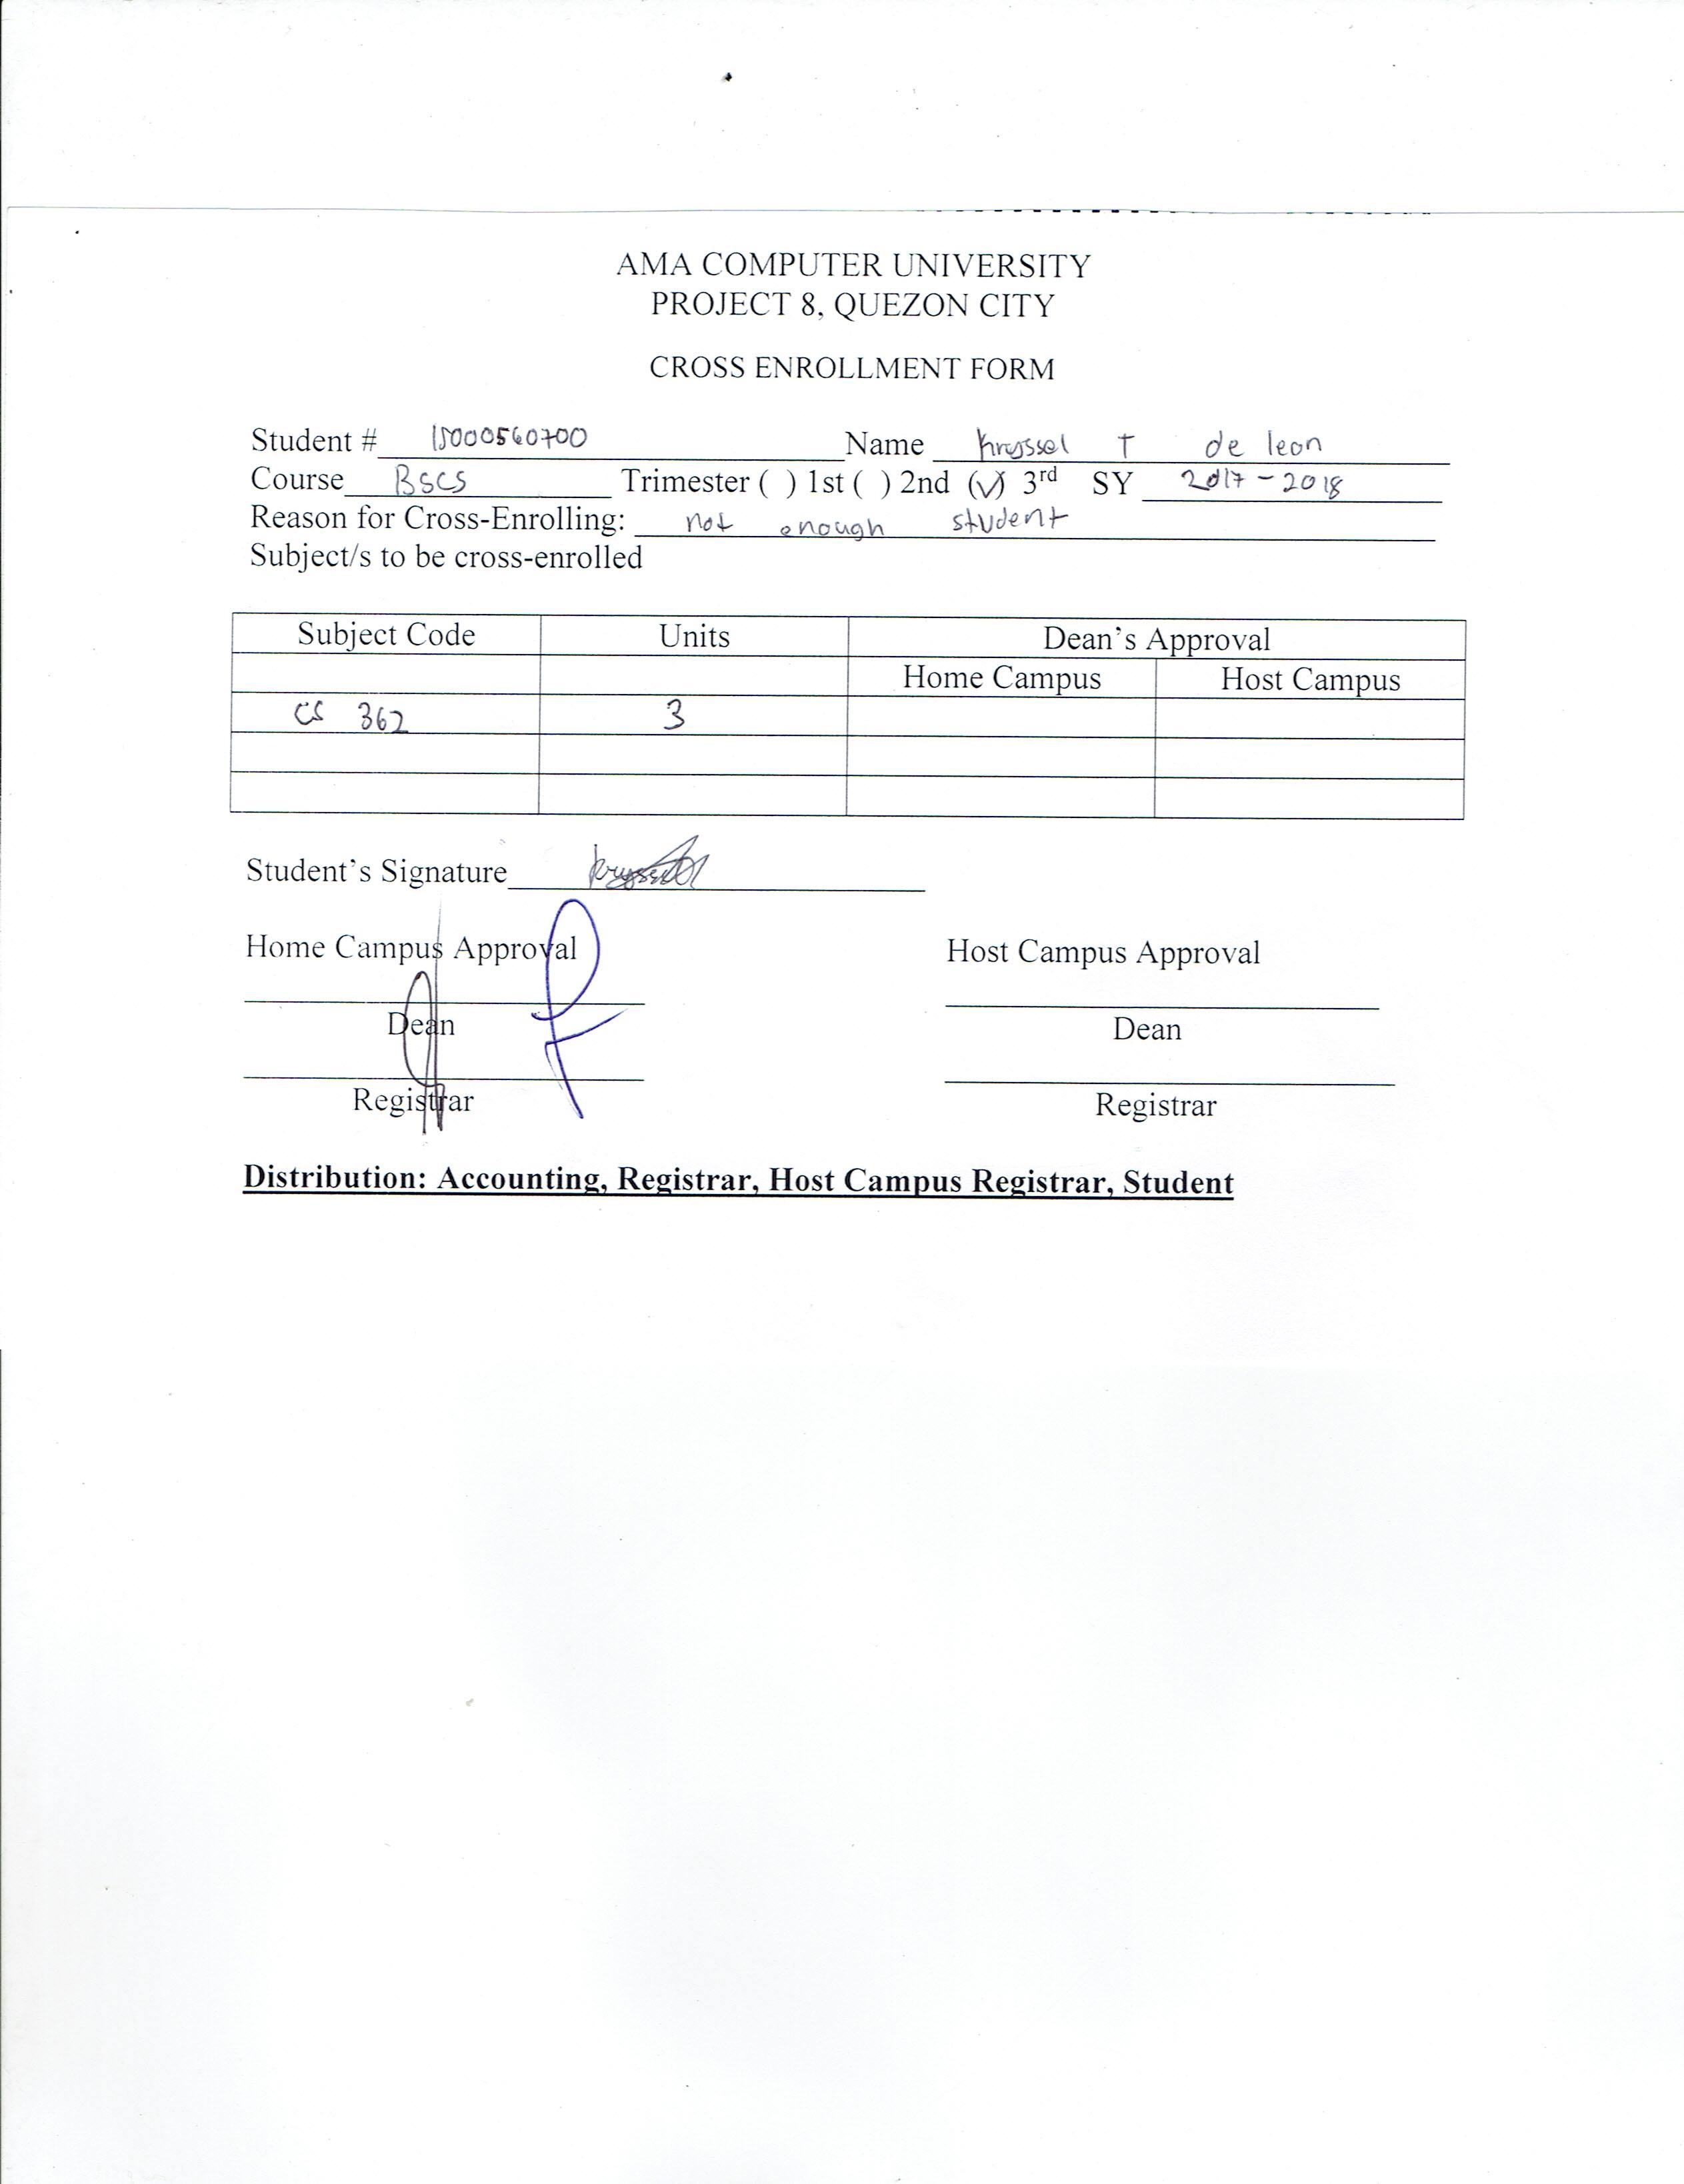 AMA COMPUTER UNIVERSITY
PROJECT 8, QUEZON CITY
CROSS ENROLLMENT FORM
Student # 15000560700 Name Kryssel T de leon
Course BSCS Trimester ( ) 1st ( ) 2nd (✓) 3rd SY 2017 - 2018
Reason for Cross-Enrolling: not enough student
Subject/s to be cross-enrolled
Subject Code Units Dean's Approval
Home Campus Host Campus
CS 362 3
Student's Signature
Home Campus Approval Host Campus Approval
Dean Dean
Registrar Registrar
Distribution: Accounting, Registrar, Host Campus Registrar, Student